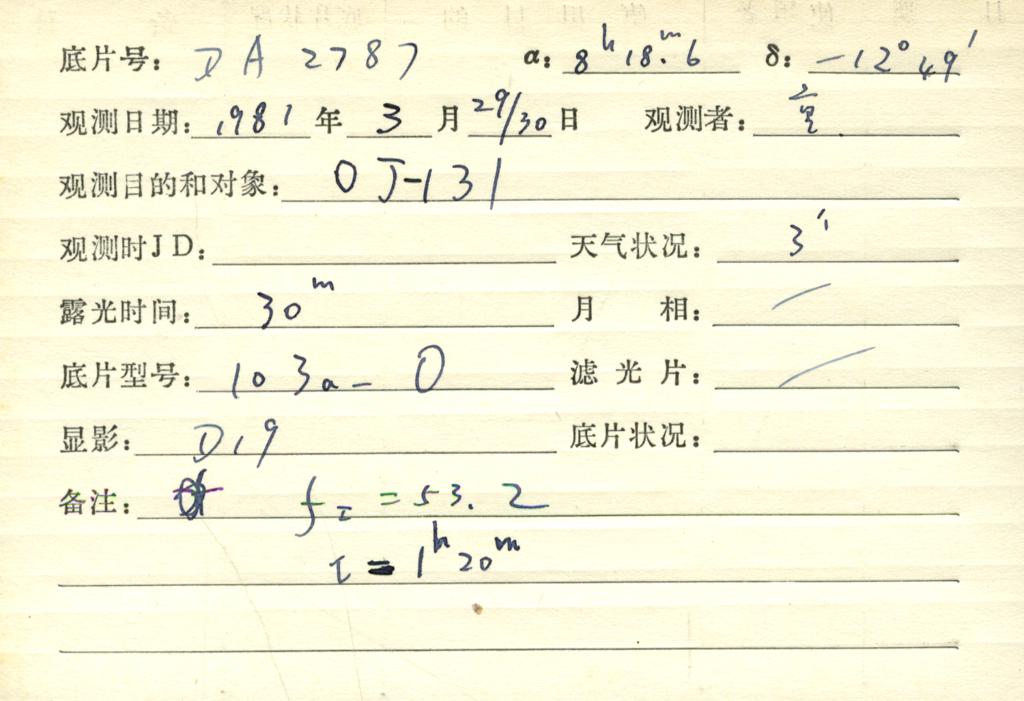 底片号: DA 2787 α: 8ʰ18ᵐ.6 δ: -12°49′
观测日期: 1981 年 3 月 29/30 日 观测者:
观测目的和对象: OJ-131
观测时JD: 天气状况: 3
露光时间: 30ᵐ 月 相: /
底片型号: 103a-O 滤光片: /
显影: D19 底片状况:
备注: = 53.2
t = 1ʰ20ᵐ